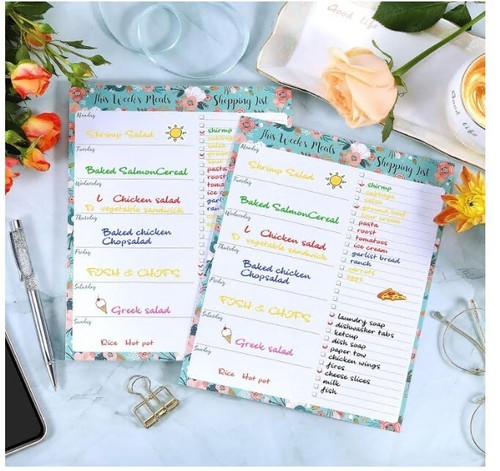 Good life
This Week's Meals Shopping List
Monday
Shrimp Salad
Tuesday
Baked SalmonCereal
Wednesday
Chicken salad
vegetable sandwich
Thursday
Baked chicken
Chopsalad
Friday
FISH & CHIPS
Saturday
Greek salad
Sunday
Rice Hot pot
shrimp
This Week's Meals Shopping List
Monday
Shrimp Salad
Tuesday
Baked SalmonCereal
Wednesday
Chicken salad
vegetable sandwich
Thursday
Baked chicken
Chopsalad
Friday
FISH & CHIPS
Saturday
Greek salad
Sunday
Rice Hot pot
shrimp
pasta
roast
tomatoss
ice cream
garlist bread
ranch
carrots
eggs
laundry soap
dishwasher tabs
ketcup
dish soap
paper tow
chicken wings
fires
cheese slices
milk
fish
Good life